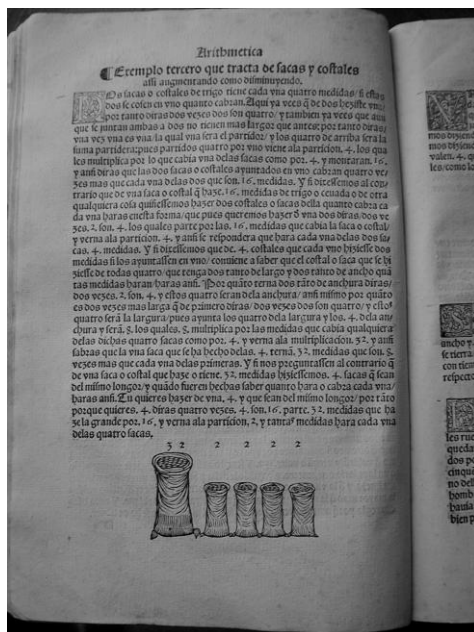 Arithmetica
¶ Exemplo tercero que tracta de sacas y costales
assi augmentando como disminuyendo.
Dos sacas o costales de trigo tiene cada vna quatro medidas / si estas
dos se cosen en vno quanto cabran. Aqui ya vees q̄ de dos heziste vno
por tanto diras dos vezes dos son quatro / y tambien ya vees que aun
que se juntan ambas a dos no tienen mas largor que antes: por tanto diras /
vna vez vna es vna la qual vna sera el partidor / y los quatro de arriba sera la
suma partidera pues partidos quatro por vno viene ala particion .4. los qua
les multiplica por lo que cabia vna delas sacas como por .4. y montaran .16.
y ansi diras que las dos sacas o costales ayuntados en vno cabran quatro ve
zes mas que cada vna delas dos que son .16. medidas. Y si dixessemos al con
trario que de vna saca o costal q̄ haze .16. medidas de trigo o ceuada o de otra
qualquiera cosa quisiessemos hazer dos costales o sacas dela quanto cabra ca
da vna haras enesta forma / que pues queremos hazer d̄ vna dos diras / dos ve
zes .2. son .4. los quales parte por las .16. medidas que cabia la saca o costal /
y verna ala particion .4. y ansi se respondera que hara cada vna delas dos sa
cas .4. medidas. Y si dixessemos que de .4. costales que cada vno hiziesse dos
medidas si los ayuntassen en vno / conuiene a saber que el costal o saca que se hi
ziesse de todas quatro / que tenga dos tanto de largo y dos tanto de ancho quā
tas medidas haran haras ansi. Por quāto terna dos tāto de anchura diras /
dos vezes .2. son .4. y estos quatro seran dela anchura / ansi mismo por quāto
es dos vezes mas larga q̄ de primero diras / dos vezes dos son quatro / y estos
quatro será la largura / pues ayunta los quatro dela largura y los .4. dela an
chura y será .8. los quales .8. multiplica por las medidas que cabia qualquiera
delas dichas quatro sacas como por .4. y verna ala multiplicacion .32. y ansi
sabras que la vna saca que se ha hecho delas .4. terná .32. medidas que son .8.
vezes mas que cada vna delas primeras. Y si nos preguntassen al contrario q̄
de vna saca o costal que haze o tiene .32. medidas hiziessemos .4. sacas q̄ sean
del mismo longor / y quādo fueren hechas saber quanto hara o cabra cada vna /
haras ansi. Tu quieres hazer de vna .4. y que sean del mismo longor / por tāto
porque quieres .4. diras quatro vezes .4. son .16. parte .32. medidas que ha
ze la grande por .16. y verna ala particion .2. y tantas medidas hara cada vna
delas quatro sacas.
3 2 2 2 2 2